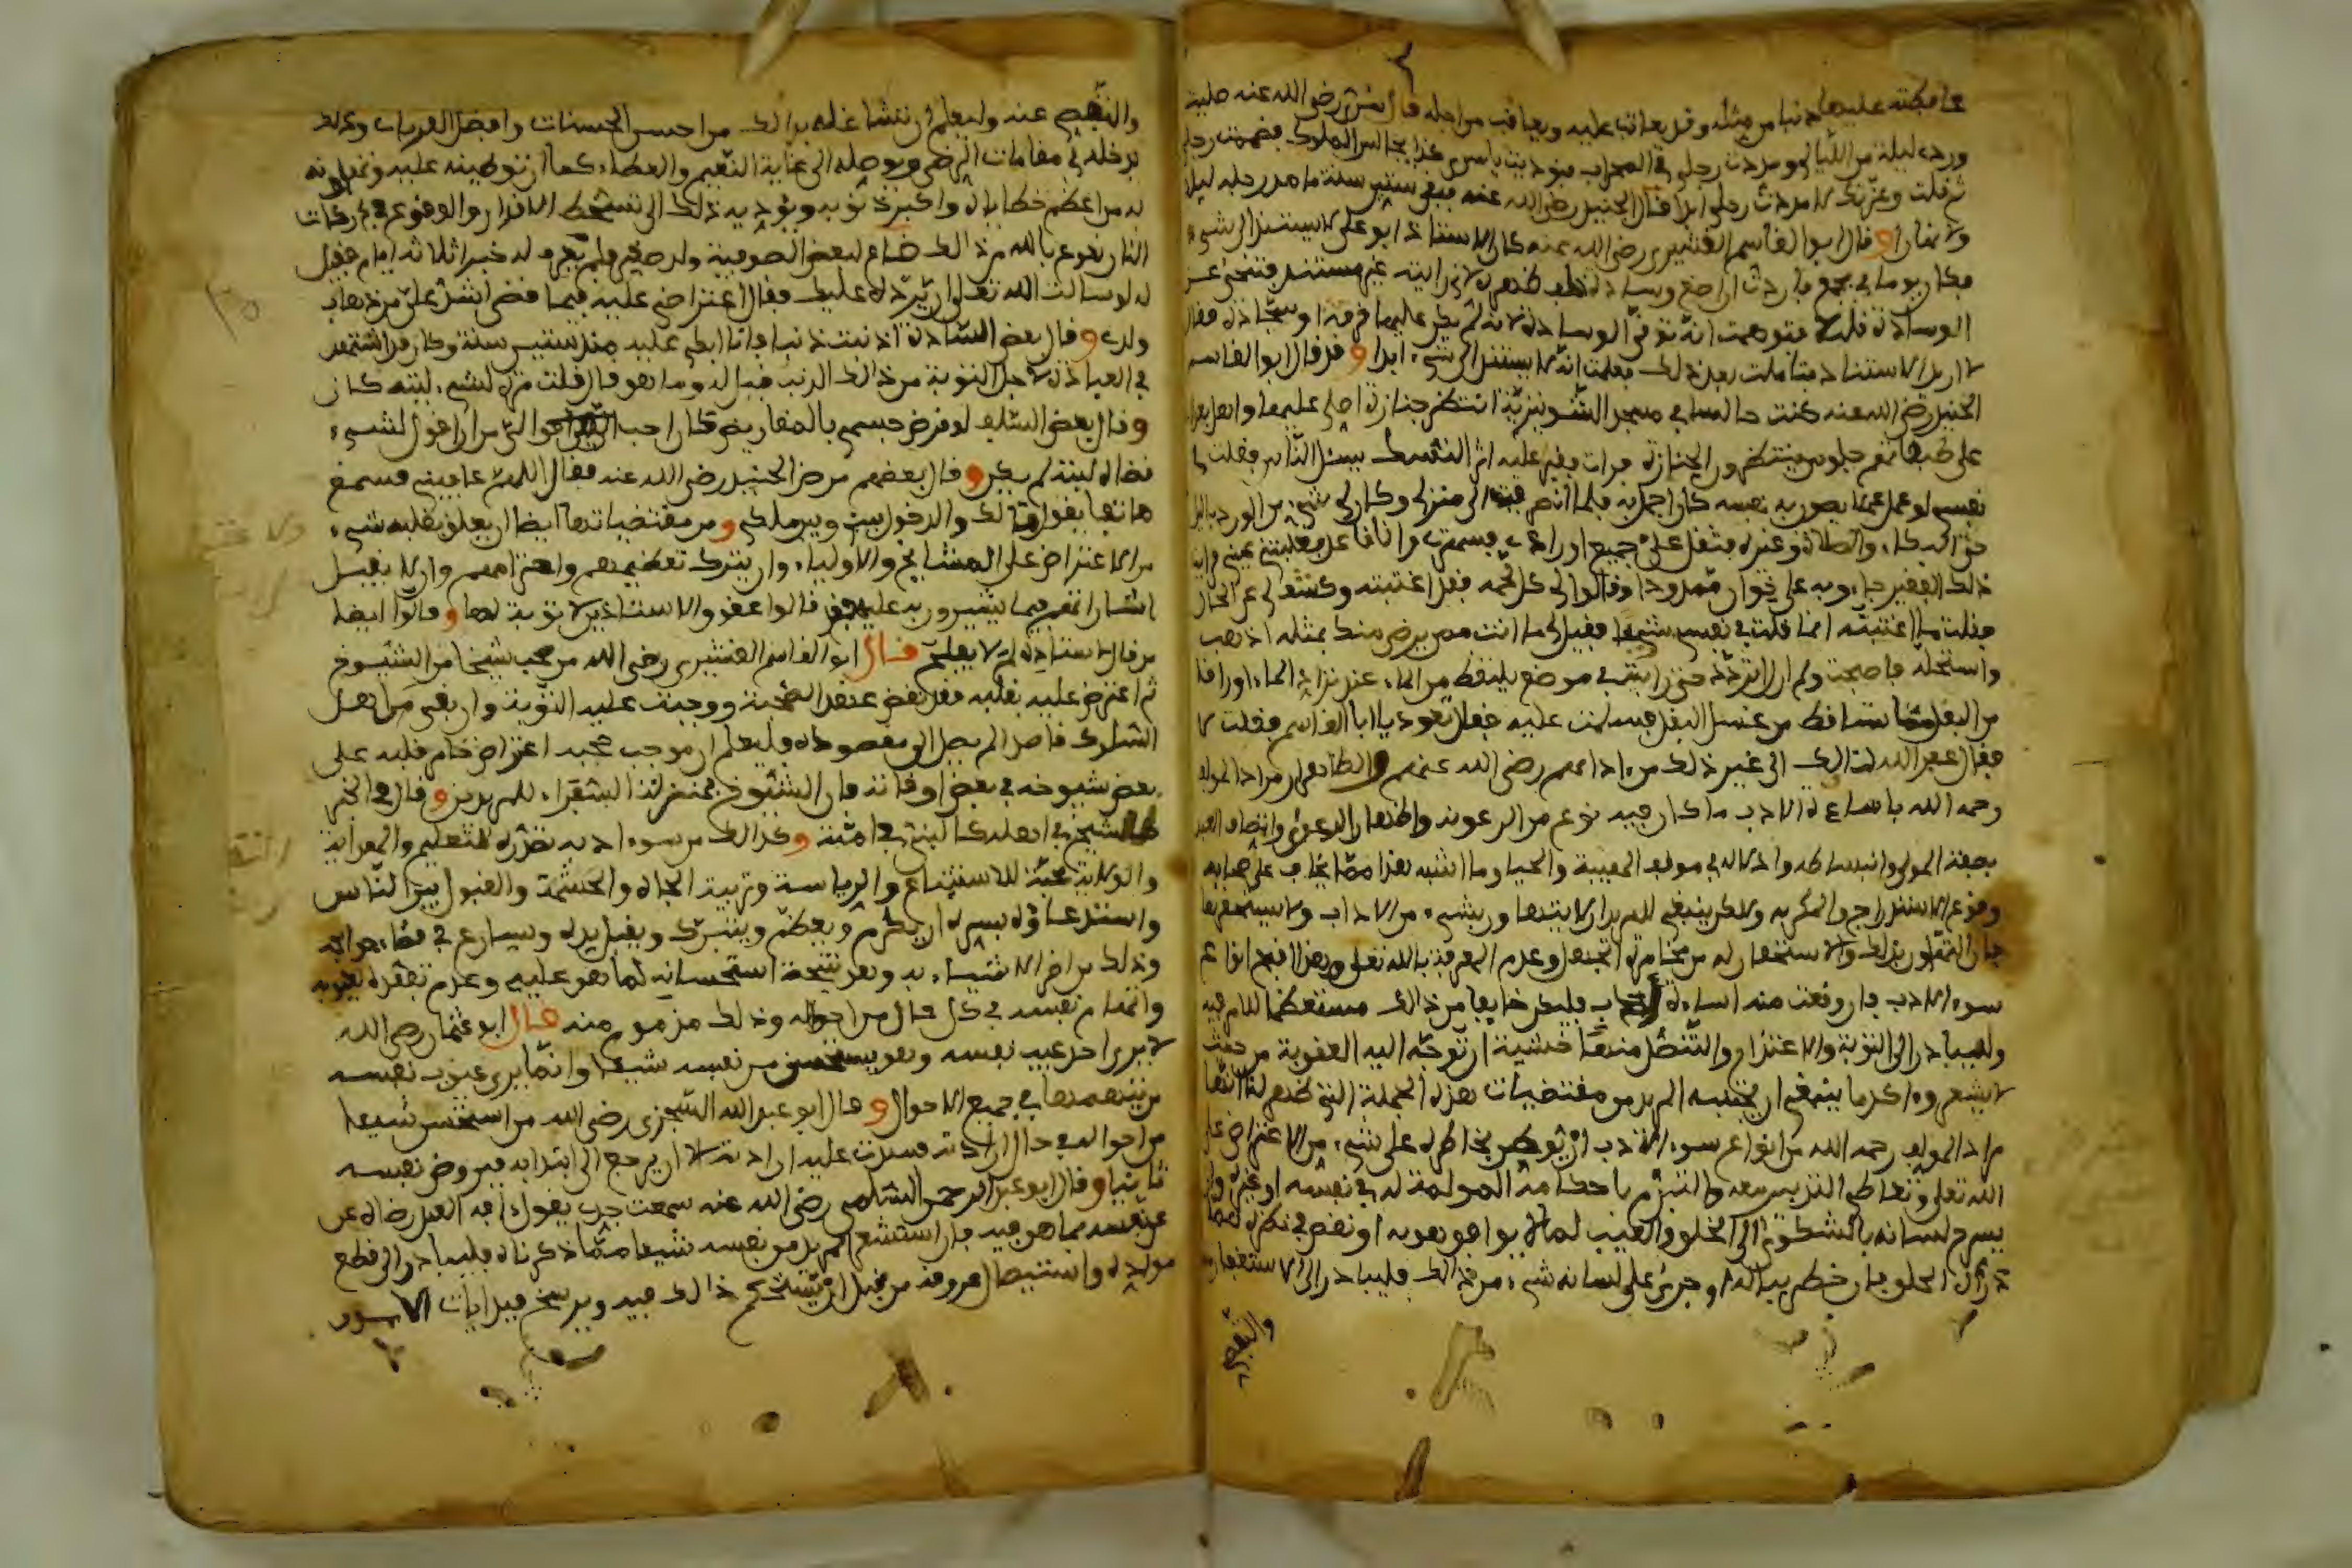 ورده ليلة من الليالي ومددت رجلي في المحراب فنوديت يا سري هكذا تجالس الملوك فضممت رجلي
ثم قلت وعزتك لا مددت رجلي ابدا قال الجنيد رضي الله عنه فبقي ستين سنة ما مد رجله ليلا
ولا نهارا وقال ابوا القاسم القشيري رضي الله عنه كان الاستاذ ابو علي لا يستند الى شيء
فكان يوما في مجمع فاردت ان اضع وسادة خلف ظهره لاني رايته غير مستند فتنحى عن
الوسادة قليلا فتوهمت انه توقى الوسادة لانه لم يكن عليها خرقة او سجادة فقال
لا اريد الاستناد فتاملت بعد ذلك فعلمت انه لا يستند الى شيء ابدا وقد قال ابوا القاسم
الجنيد رضي الله عنه كنت جالسا في مسجد الشونيزية انتظر جنازة اصلي عليها واهل بغداد
على طبقاتهم جلوس ينتظرون الجنازة فرايت فقيرا عليه اثر النسك يسئل الناس فقلت في
نفسي لو عمل عملا يصون به نفسه كان اجمل به فلما انصرفت الى منزلي وكان لي شيء من الورد بالليل
حتى البكاء والصلاة وغيره فثقل علي جميع اورادي فسهرت وانا قاعد فغلبتني عيني فرايت
ذلك الفقير جاءوا به على خوان ممدود وقالوا لي كل لحمه فقد اغتبته وكشف لي عن الحال
فقلت ما اغتبته انما قلت في نفسي شيئا فقيل لي ما انت ممن يرضى منك بمثله اذهب
واستحله فاصبحت ولم ازل اتردد حتى رايته في موضع يلتقط من الماء عند تزايد الماء اوراقا
من البقل مما تساقط من غسل البقل فسلمت عليه فقال تعود يا ابا القاسم فقلت لا
فقال غفر الله لنا ولك الى غير ذلك من ادابهم رضي الله عنهم والظاهر ان مراد المولف
رحمه الله باساءة الادب ما كان فيه نوع من الرعونة واظهار الدعوى واتصاف العبد
بصفة المولى وانبساطه وادلاله في موقف الهيبة والحيا وما اشبه هذا مما يخاف على صاحبه
وقوع الاستدراج والمكر به ولاكن ينبغي للمريد ان لا يتهاون بشيء من الاداب ولا يستصغرها
فان التهاون بذلك والاستحقار له من مخامرة الجهل وعدم المعرفة بالله تعلى وهذا اقبح انواع
سوء الادب فان وقعت منه اساءة ادب فليكن خايفا من ذالك مستعظما للامر فيه
وليبادر الى التوبة والاعتذار والتنصل منها خشية ان توجه اليه العقوبة من حيث
لا يشعر وءاكد ما ينبغي ان يجتنبه المريد من مقتضيات هذه الجملة التي ظهر لنا انها
مراد المولف رحمه الله من انواع سوء الادب ان يخطر بخاطره على شيء من الاعتراض على
الله تعلى وتعاطي التدبير معه والتبرم باحكامه المولمة له في نفسه او غيره وان
يسرح لسانه بالشكوى الى الخلق والعيب لما لا يوافق هوبه او نقص في نظره
فان خطر بباله او جرى على لسانه شيء من ذالك فليبادر الى الاستغفار منه
والتفصي
والتفصي عنه وليعلم ان تشاغله بذالك من احسن الحسنات وافضل القربات وكذلك
يدخله في مقامات الرضى ويوصله الى غاية النعيم والعطاء كما ان توطينه عليه وتهاونه
به من اعظم خطاياه واكبر ذنوبه ويؤديه ذلك الى تسخط الاقدار والوقوع في دركات
النار نعوذ بالله من ذالك ضاع لبعض الصوفية ولد صغير فلم يعرف له خبر ثلاثة ايام فقيل
له لو سالت الله تعلى ان يرده عليك فقال اعتراضي عليه فيما قضى اشد علي من ذهاب
ولدي وقال بعض السادة اذنبت ذنبا فانا ابكي عليه منذ ستين سنة وكان قد اجتهد
في العبادة لاجل التوبة من ذالك الذنب فقيل له وما هو قال قلت مرة لشيء ليته كان
وقال بعض السلف لو قرض جسمي بالمقاريض كان احب الي من ان اقول لشيء
قضاه ليته لم يكن وقال بعضهم مرض الجنيد رضي الله عنه فقال اللهم عافيني فسمع
هاتفا يقول مالك والدخول بيني وبين ملكي ومن مقتضياتها ايضا ان يعلق بقلبه شيء
من الاعتراض على المشايخ والاولياء وان يترك تعظيمهم واحترامهم وان لا يقبل
اشاراتهم فيما يشيرون به عليه فقد قالوا عقوق الاستاذين لا توبة لها وقالوا ايضا
من قال لاستاذه لم لا يفلح قال ابو القاسم القشيري رضي الله من صحب شيخا من الشيوخ
ثم اعترض عليه بقلبه فقد نقض عهد الصحبة ووجبت عليه التوبة وان بقي من اهل
السلوك قاصدا لم يصل الى مقصوده فليعلم ان موجب حجبه اعتراض خامر قلبه على
بعض شيوخه في بعض اوقاته فان الشيوخ بمنزلة السفراء للمريدين وقال في الخبر
الشيخ في اهله كالنبي في امته وكذالك من سوء ادبه تصدره للتعليم والهداية
والولاية محبة للاستتباع والرياسة وتربية الجاه والحشمة والقبول بين الناس
واستدعاؤه بسره ان يكرم ويعظم ويتبرك ويقبل يده ويسارع في قضاء حوائجه
وذلك من اضر الاشياء به وهو نتيجة استحسانه لما هو عليه وعدم تفقده لعيوبه
واتهام نفسه في كل حال من احواله وذلك مذموم منه قال ابو عثمان رضي الله
لا يرى احد عيب نفسه وهو يستحسن من نفسه شيئا وانما يرى عيوب نفسه
من يتهمها في جميع الاحوال وقال ابو عبد الله السجزي رضي الله من استحسن شيئا
من احواله في حال ارادته فسدت عليه ارادته الا ان يرجع الى ابتدايه فيروض نفسه
ثانيا وقال ابو عبد الرحمن السلمي رضي الله عنه سمعت جدي يقول افة العبد رضاه عن
نفسه بما هو فيه فان استشعر المريد من نفسه شيئا مما ذكرناه فليبادر الى قطع
مواده واستيصال عروقه من قبل ان يستحكم ذالك فيه ويرسخ فيه